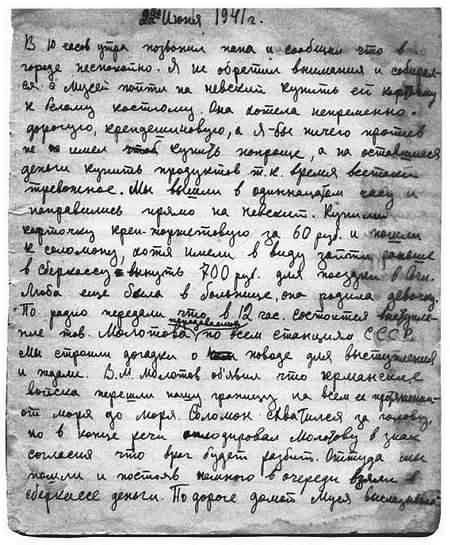 22го Июня 1941 г.
В 10 часов утра позвонил папа и сообщил что в
городе неспокойно. Я не обратил внимания и собирал-
ся с Мусей пойти на невский купить ей кофточку
к белому костюму. Она хотела непременно
дорогую, крепдешиновую, а я бы ничего против
не имел купить попроще, а на оставшиеся
деньги купить продуктов т.к. время всетаки
тревожное. Мы вышли в одиннадцатом часу и
направились прямо на невский. Купили
кофточку креп-жоржетовую за 60 руб. и пошли
к Соломону, хотя имели в виду зайти раньше
в сберкассу вынуть 700 руб. для поездки в
Люба еще была в больнице, она родила девочку.
По радио передали что в 12 час. состоится выступле-
ние тов. Молотова по всем станциям СССР.
Мы строили догадки о поводе для выступления
и ждали. В. М. Молотов объявил что германские
войска перешли нашу границу на всем ее протяжении
от моря до моря. Соломон схватился за голову,
но в конце речи аплодировал Молотову в знак
согласия что враг будет разбит. Оттуда мы
пошли и постояв немного в очереди взяли в
сберкассе деньги. По дороге домой Муся